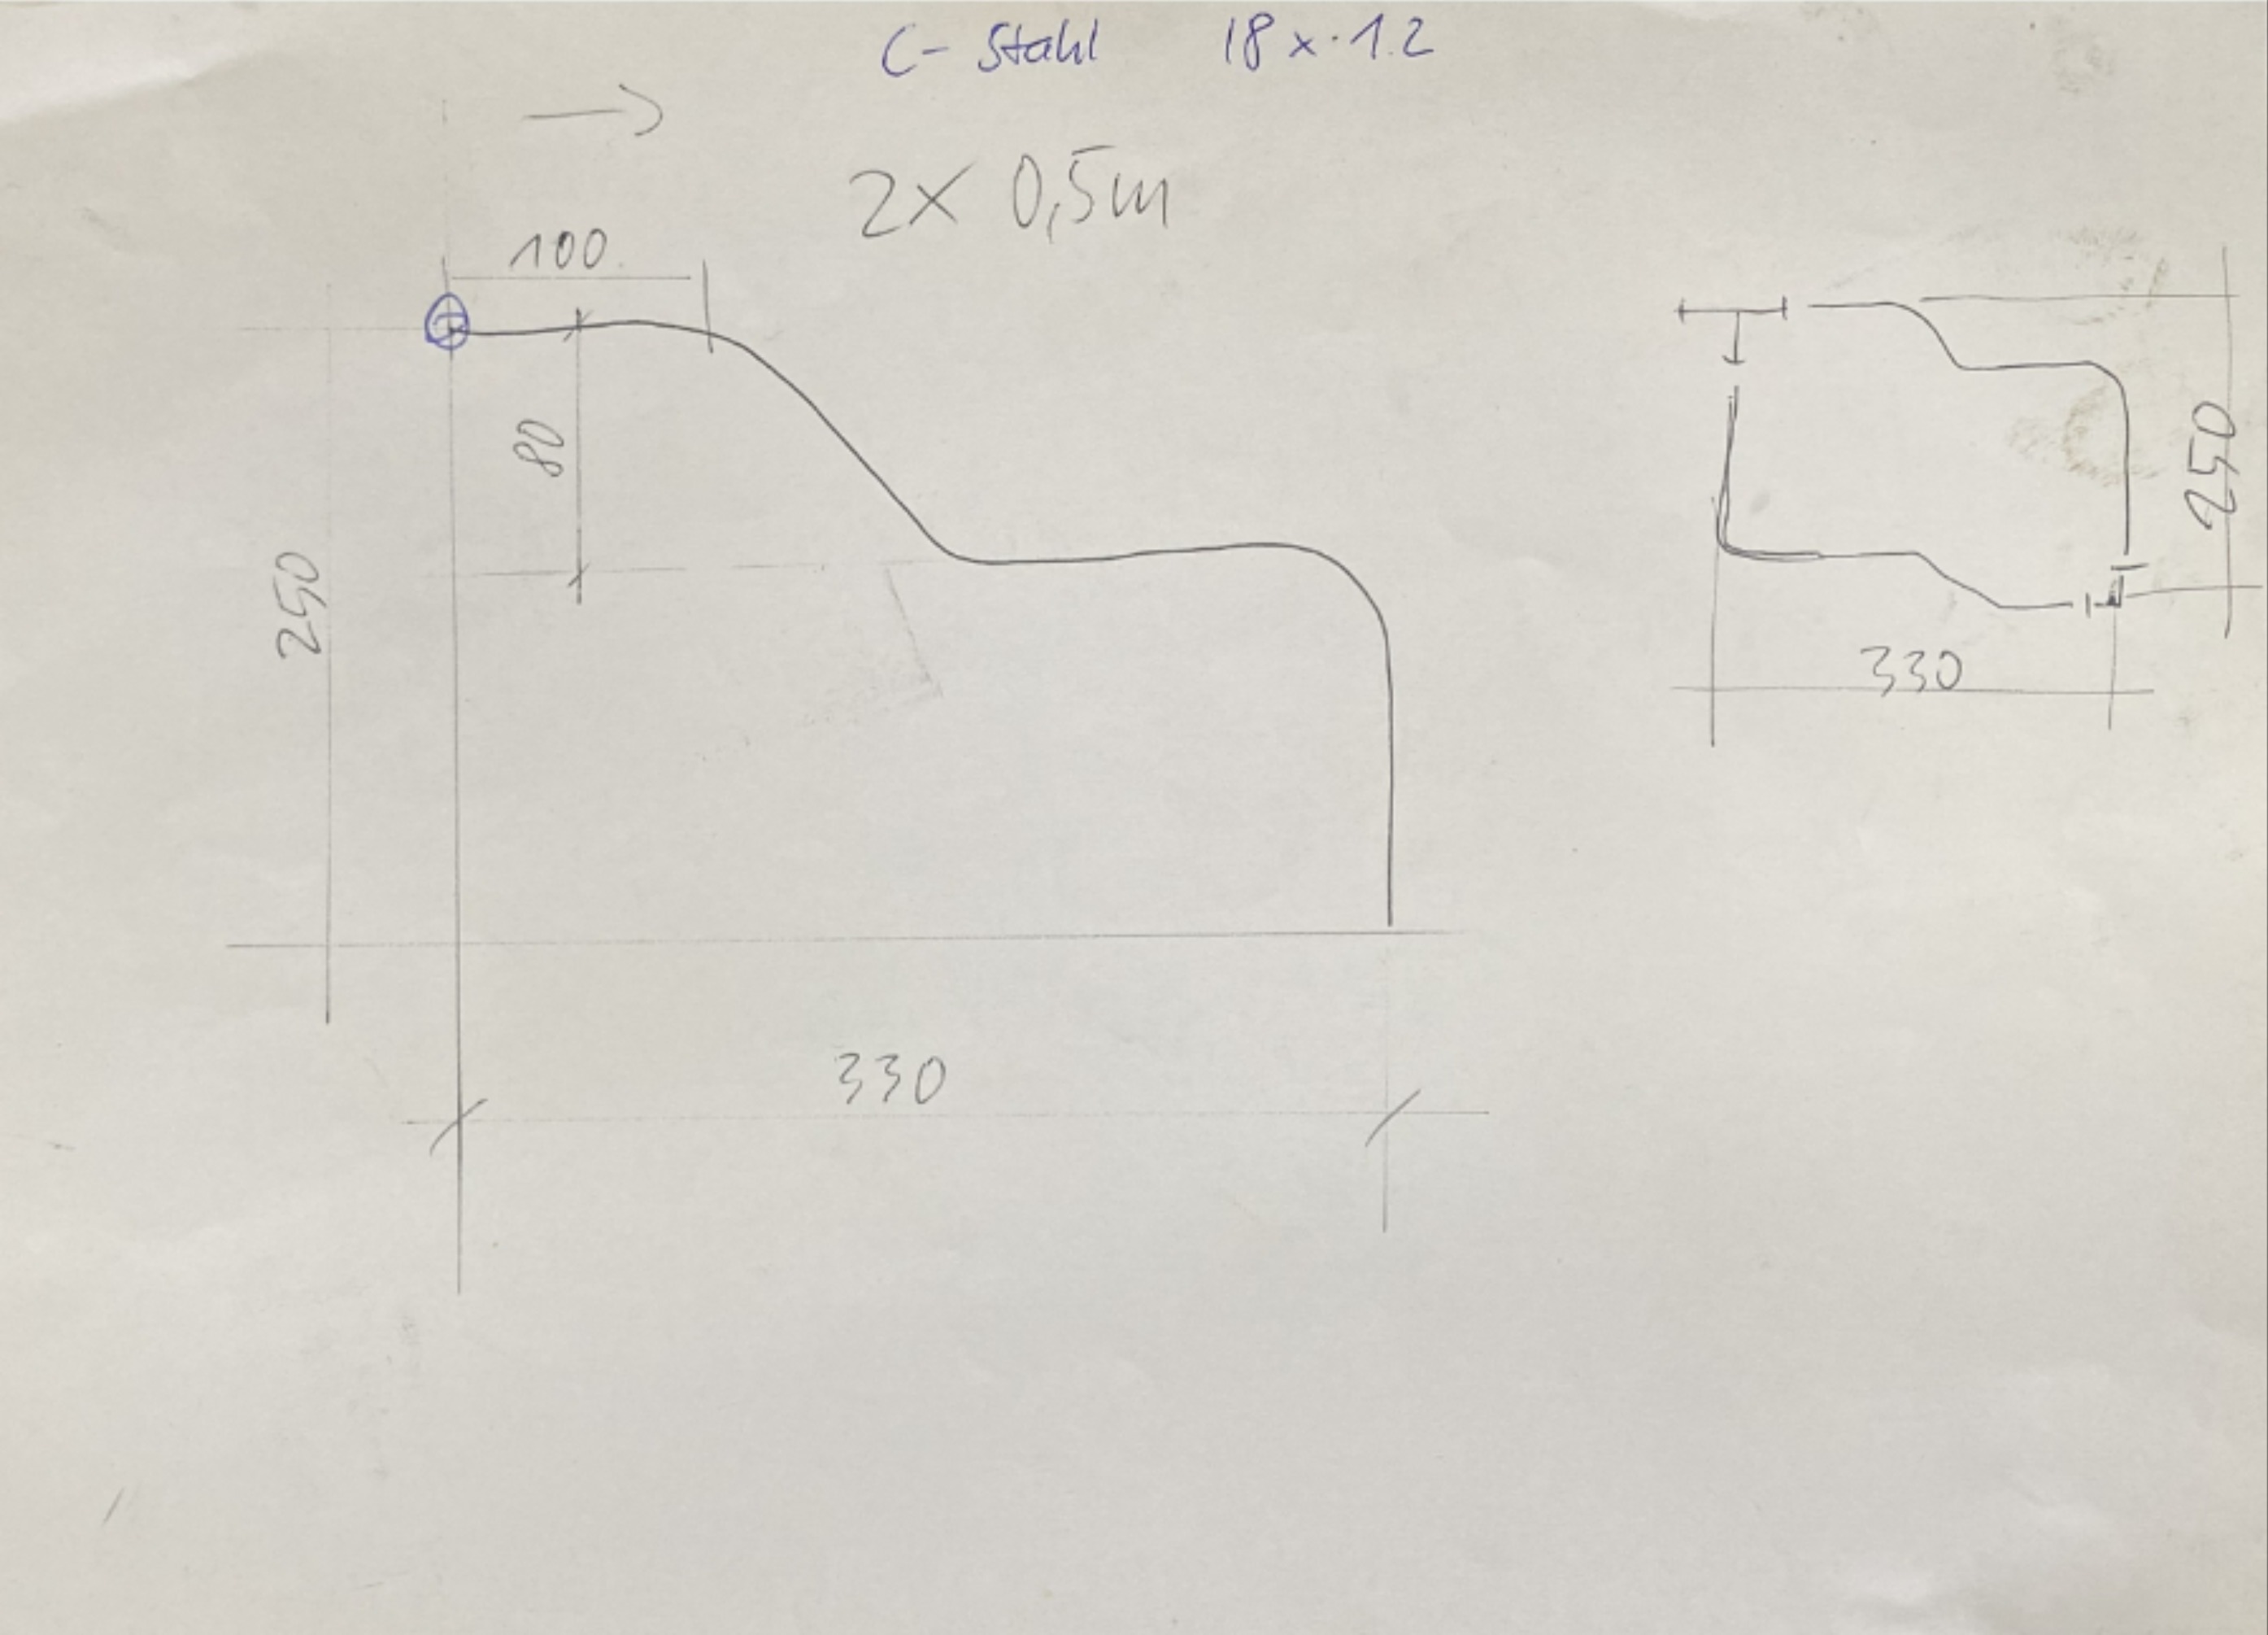 C-Stahl 18 x 1.2
2x 0,5m
100
80
250
330
250
330